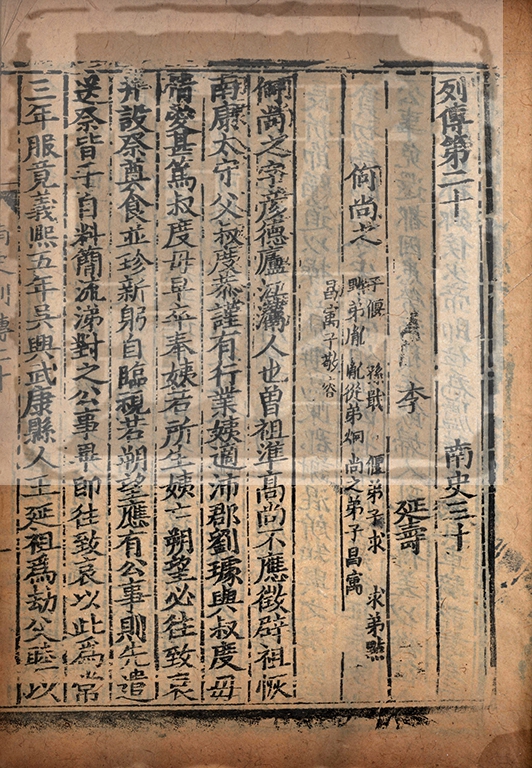 列傳第二十　南史三十
李　延壽
何尚之 子偃　孫戢　偃弟子求　求弟點
點弟胤　胤從弟炯　尚之弟子昌寓
昌寓子敬容
何尚之字彥德廬江灊人也曾祖準高尚不應徵辟祖恢
南康太守父叔度恭謹有行業姨適沛郡劉璩與叔度母
情愛甚篤叔度母早卒奉姨若所生姨亡朔望必往致哀
并設祭奠食並珍新躬自臨視若朔望應有公事則先遣
送祭皆手自料簡流涕對之公事畢即往致哀以此爲常
三年服竟義熙五年吳興武康縣人王延祖爲劫父睦以